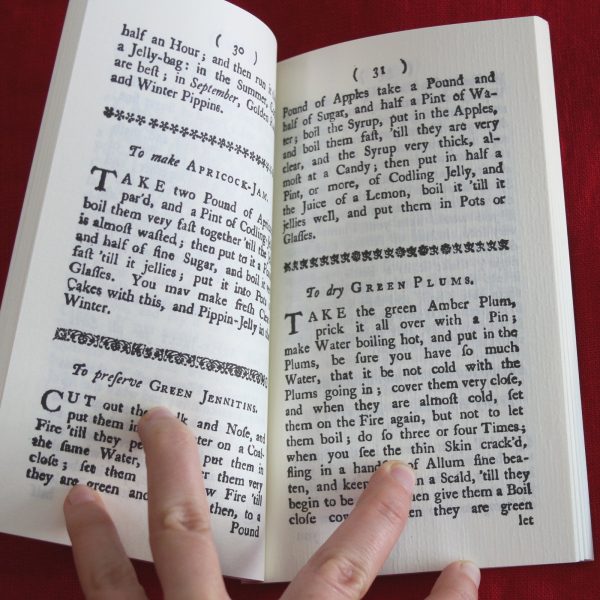 ( 30 )
half an Hour; and then run it
a Jelly-bag: in the Summer,
are beſt; in September, Golden
and Winter Pippins.
To make APRICOCK-JAM.
TAKE two Pound of
par'd, and a Pint of Codling-
boil them very faſt together 'till the
is almoſt waſted; then put to it a
and half of fine Sugar, and boil it
faſt 'till it jellies; put it into Pots
Glaſſes. You may make freſh
Cakes with this, and Pippin-Jelly in the
Winter.
To preſerve GREEN JENNITINS.
CUT out the and Noſe, and
put them in on a Coal-
Fire 'till they put them in
the ſame Water,
cloſe; ſet them Fire 'till
they are green then, to a
Pound
( 31 )
Pound of Apples take a Pound and
half of Sugar, and half a Pint of Wa-
ter; boil the Syrup, put in the Apples,
and boil them faſt, 'till they are very
clear, and the Syrup very thick, al-
moſt at a Candy; then put in half a
Pint, or more, of Codling Jelly, and
the Juice of a Lemon, boil it 'till it
jellies well, and put them in Pots or
Glaſſes.
To dry GREEN PLUMS.
TAKE the green Amber Plum,
prick it all over with a Pin;
make Water boiling hot, and put in the
Plums, be ſure you have ſo much
Water, that it be not cold with the
Plums going in; cover them very cloſe,
and when they are almoſt cold, ſet
them on the Fire again, but not to let
them boil; do ſo three or four Times;
when you ſee the thin Skin crack'd,
fling in a of Allum fine bea-
ten, and keep in a Scald, 'till they
begin to be then give them a Boil
cloſe they are green
let